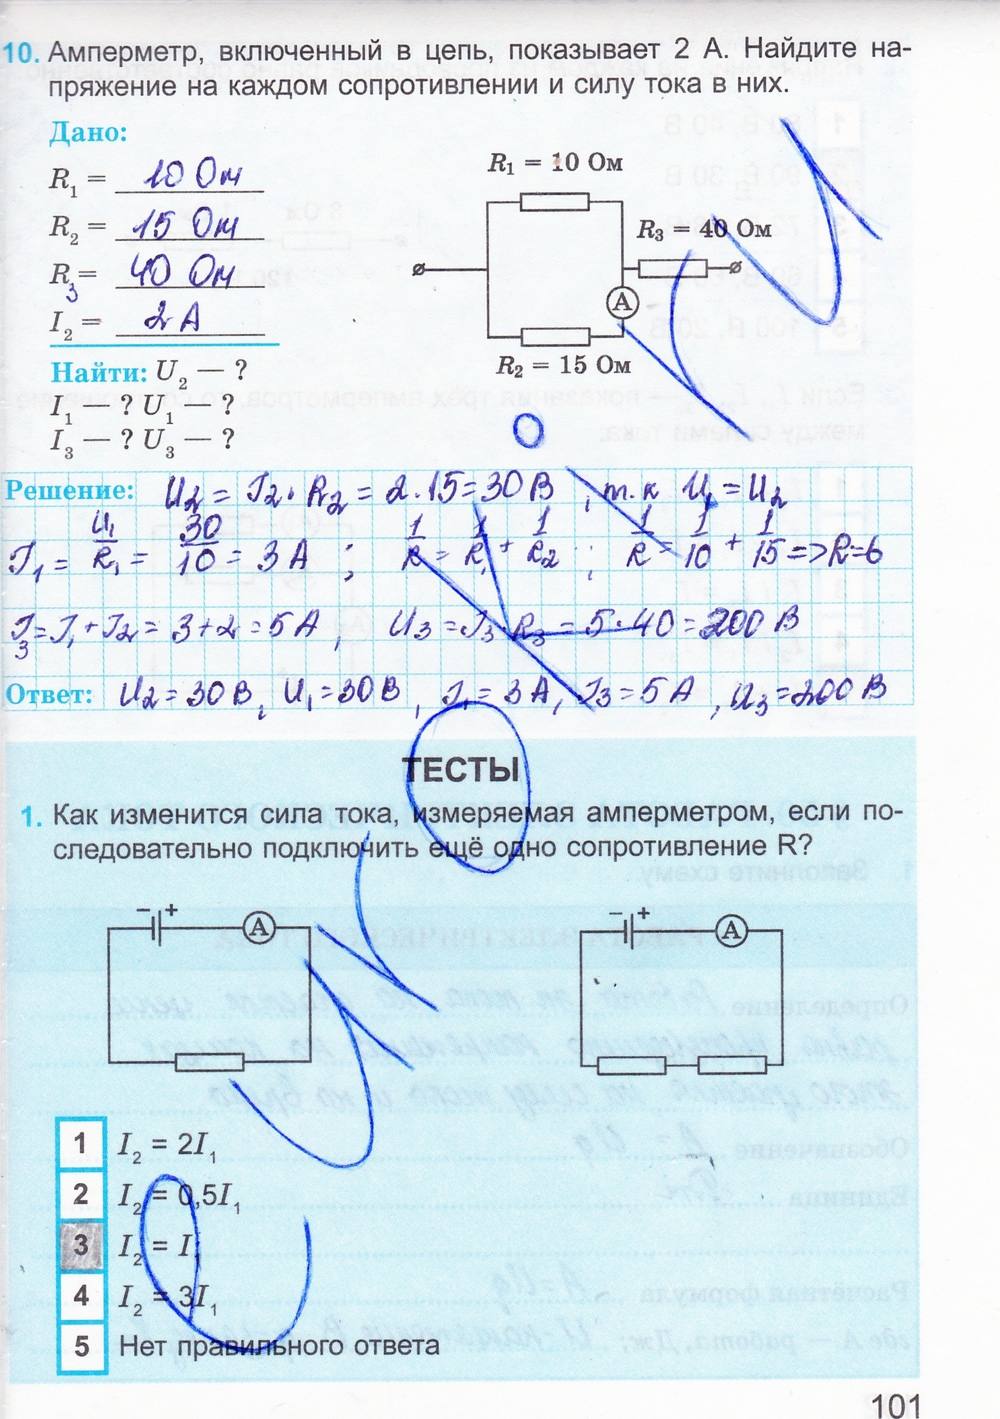 10. Амперметр, включенный в цепь, показывает 2 А. Найдите на-
пряжение на каждом сопротивлении и силу тока в них.
Дано:
R₁ = 10 Ом
R₂ = 15 Ом
R₃ = 40 Ом
I₂ = 2 А
Найти: U₂ — ?
I₁ — ? U₁ — ?
I₃ — ? U₃ — ?
R₁ = 10 Ом
R₃ = 40 Ом
A
R₂ = 15 Ом
Решение: U₂ = I₂ · R₂ = 2 · 15 = 30 В , т.к U₁ = U₂
I₁ = U₁/R₁ = 30/10 = 3 А ; 1/R = 1/R₁ + 1/R₂ ; 1/R = 1/10 + 1/15 => R=6
I₃ = I₁ + I₂ = 3 + 2 = 5 А ; U₃ = I₃ · R₃ = 5 · 40 = 200 В
Ответ: U₂ = 30 В, U₁ = 30 В , I₁ = 3 А, I₃ = 5 А , U₃ = 200 В
ТЕСТЫ
1. Как изменится сила тока, измеряемая амперметром, если по-
следовательно подключить ещё одно сопротивление R?
– + A
– + A
1 I₂ = 2I₁
2 I₂ = 0,5I₁
3 I₂ = I₁
4 I₂ = 3I₁
5 Нет правильного ответа
101